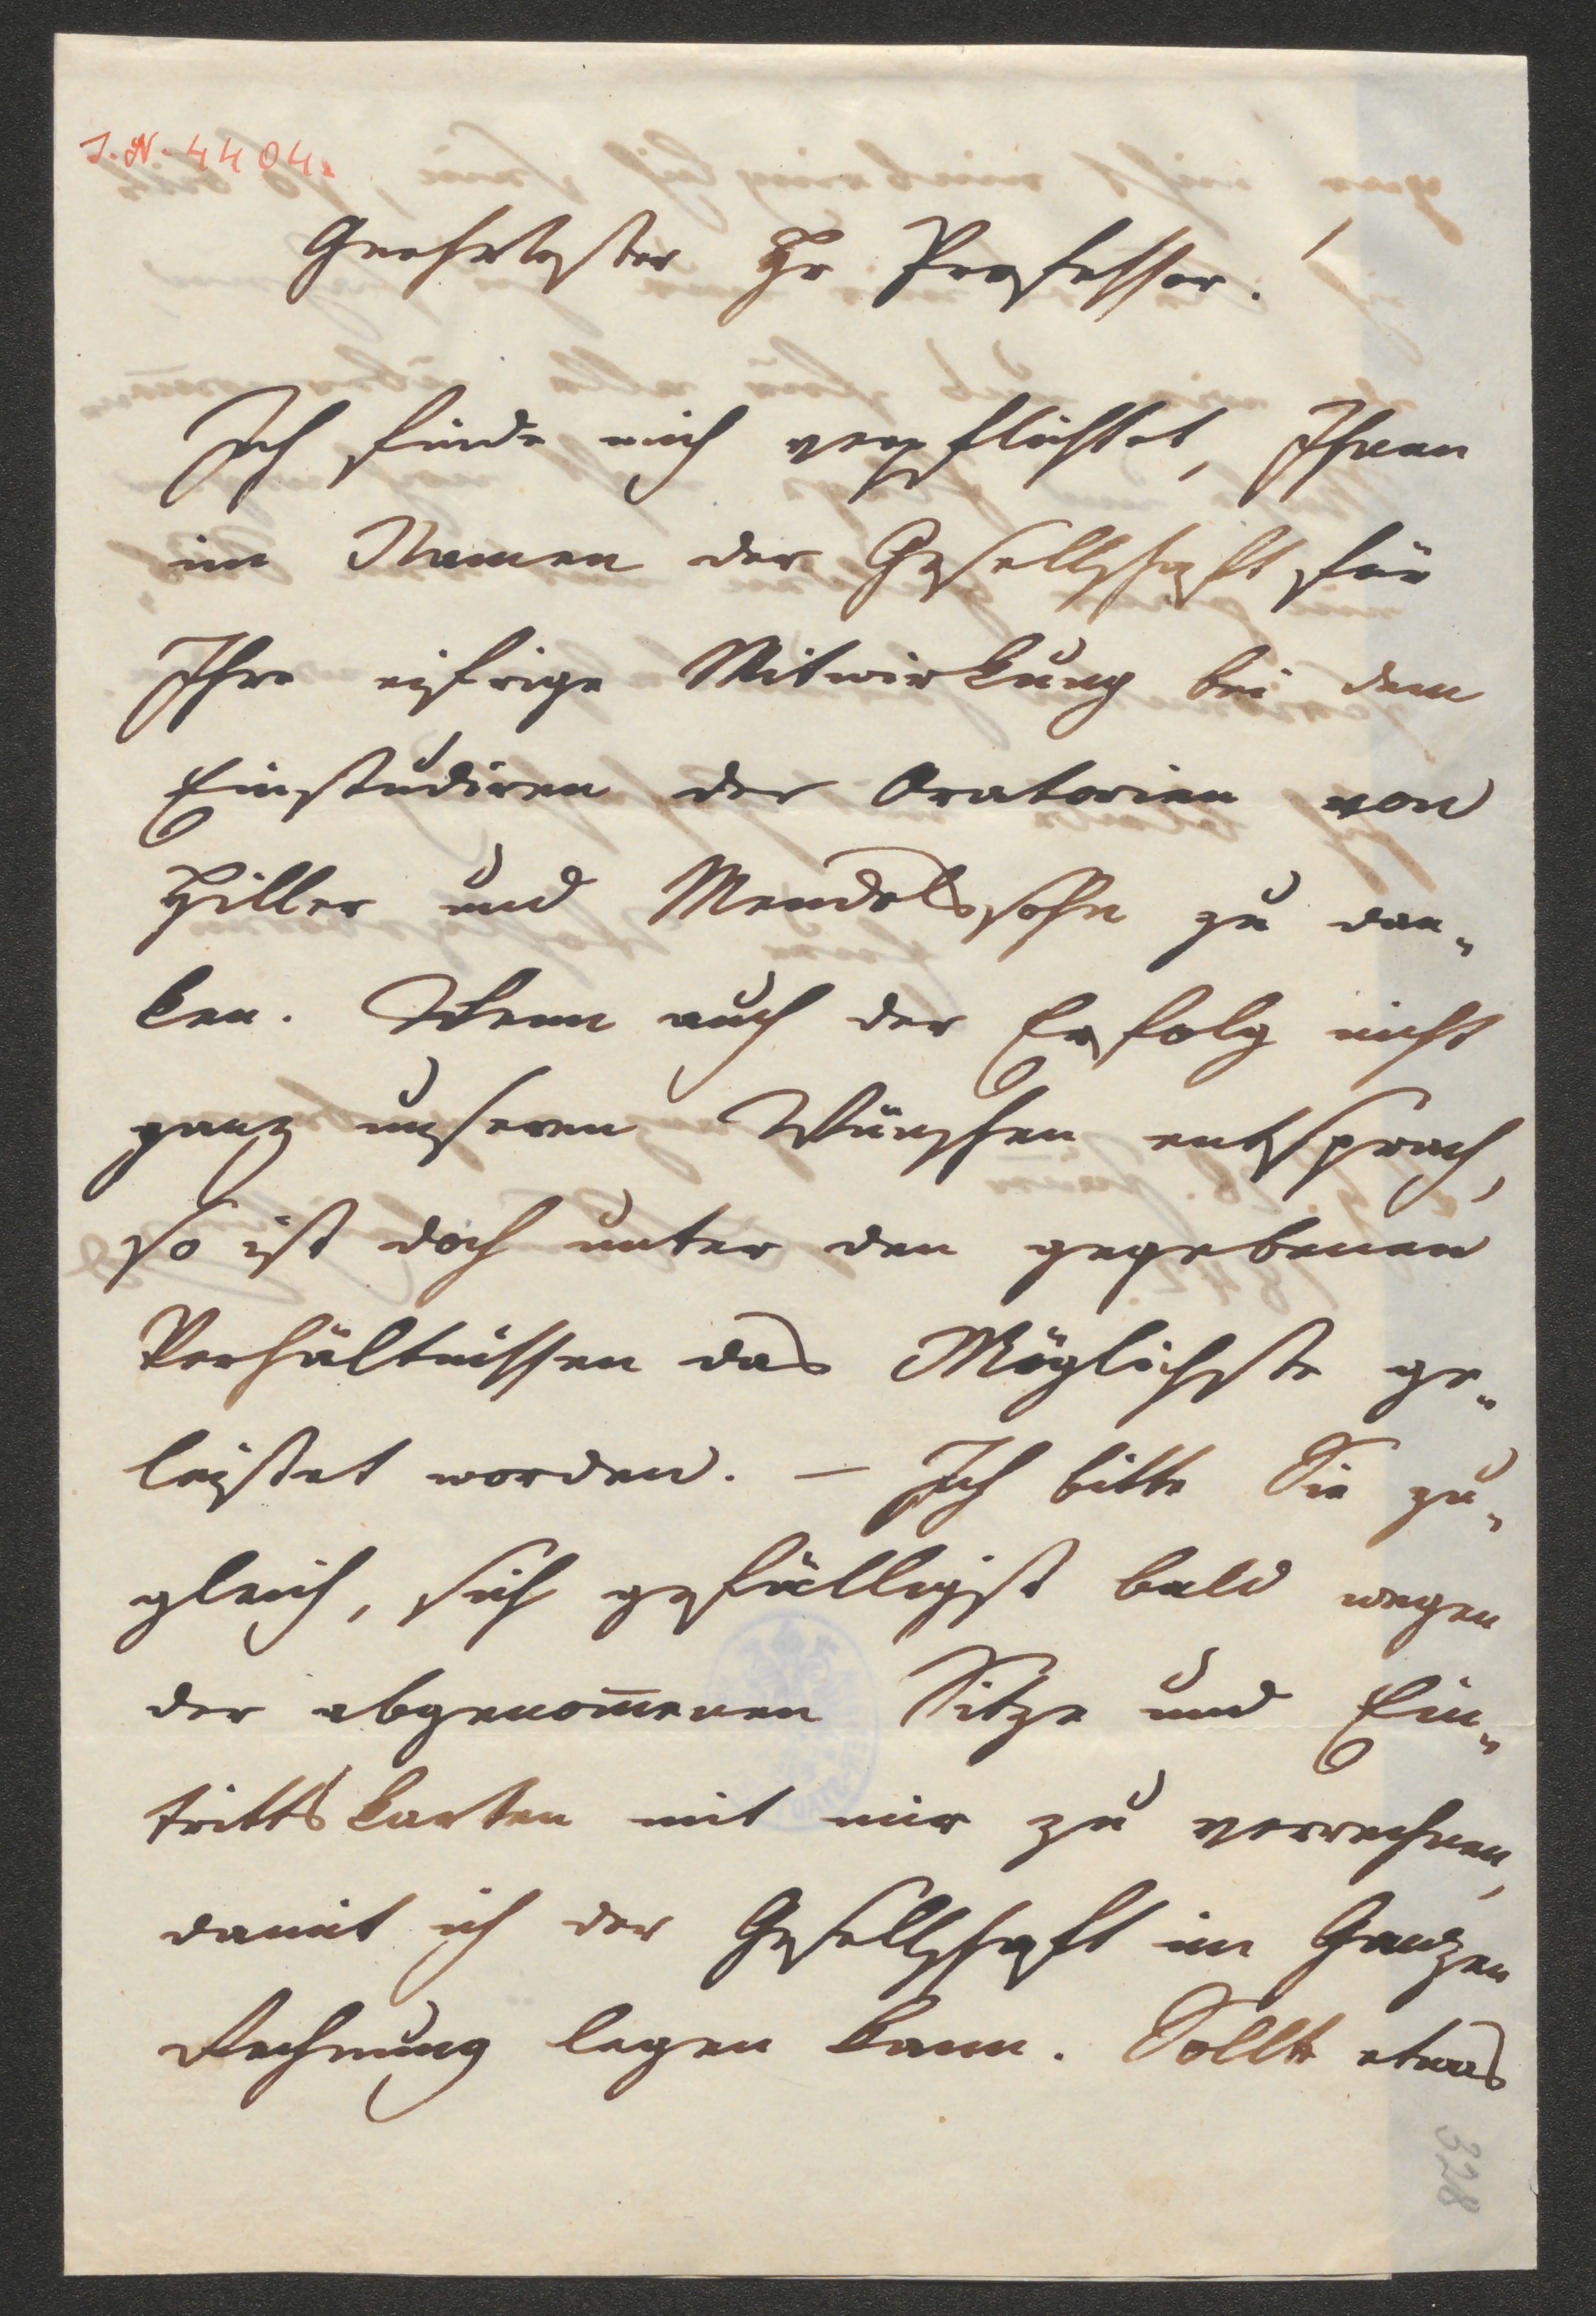 J. N. 4404.
Geehrtester Hr Professor!
Ich finde mich verpflichtet, Ihnen
im Namen der Gesellschaft für
Ihre eifrige Mitwirkung bei dem
Einstudiren der Oratorien von
Hiller und Mendelssohn zu dan-
ken. Wenn auch der Erfolg nicht
ganz unseren Wünschen entsprach,
so ist doch unter den gegebenen
Verhältnissen das Möglichste ge-
leistet worden. – Ich bitte Sie zu-
gleich, sich gefälligst bald wegen
der abgenom̅enen Sitze und Ein-
trittskarten mit mir zu verrechnen,
damit ich der Gesellschaft im Ganzen
Rechnung legen kann. Sollte etwas
328